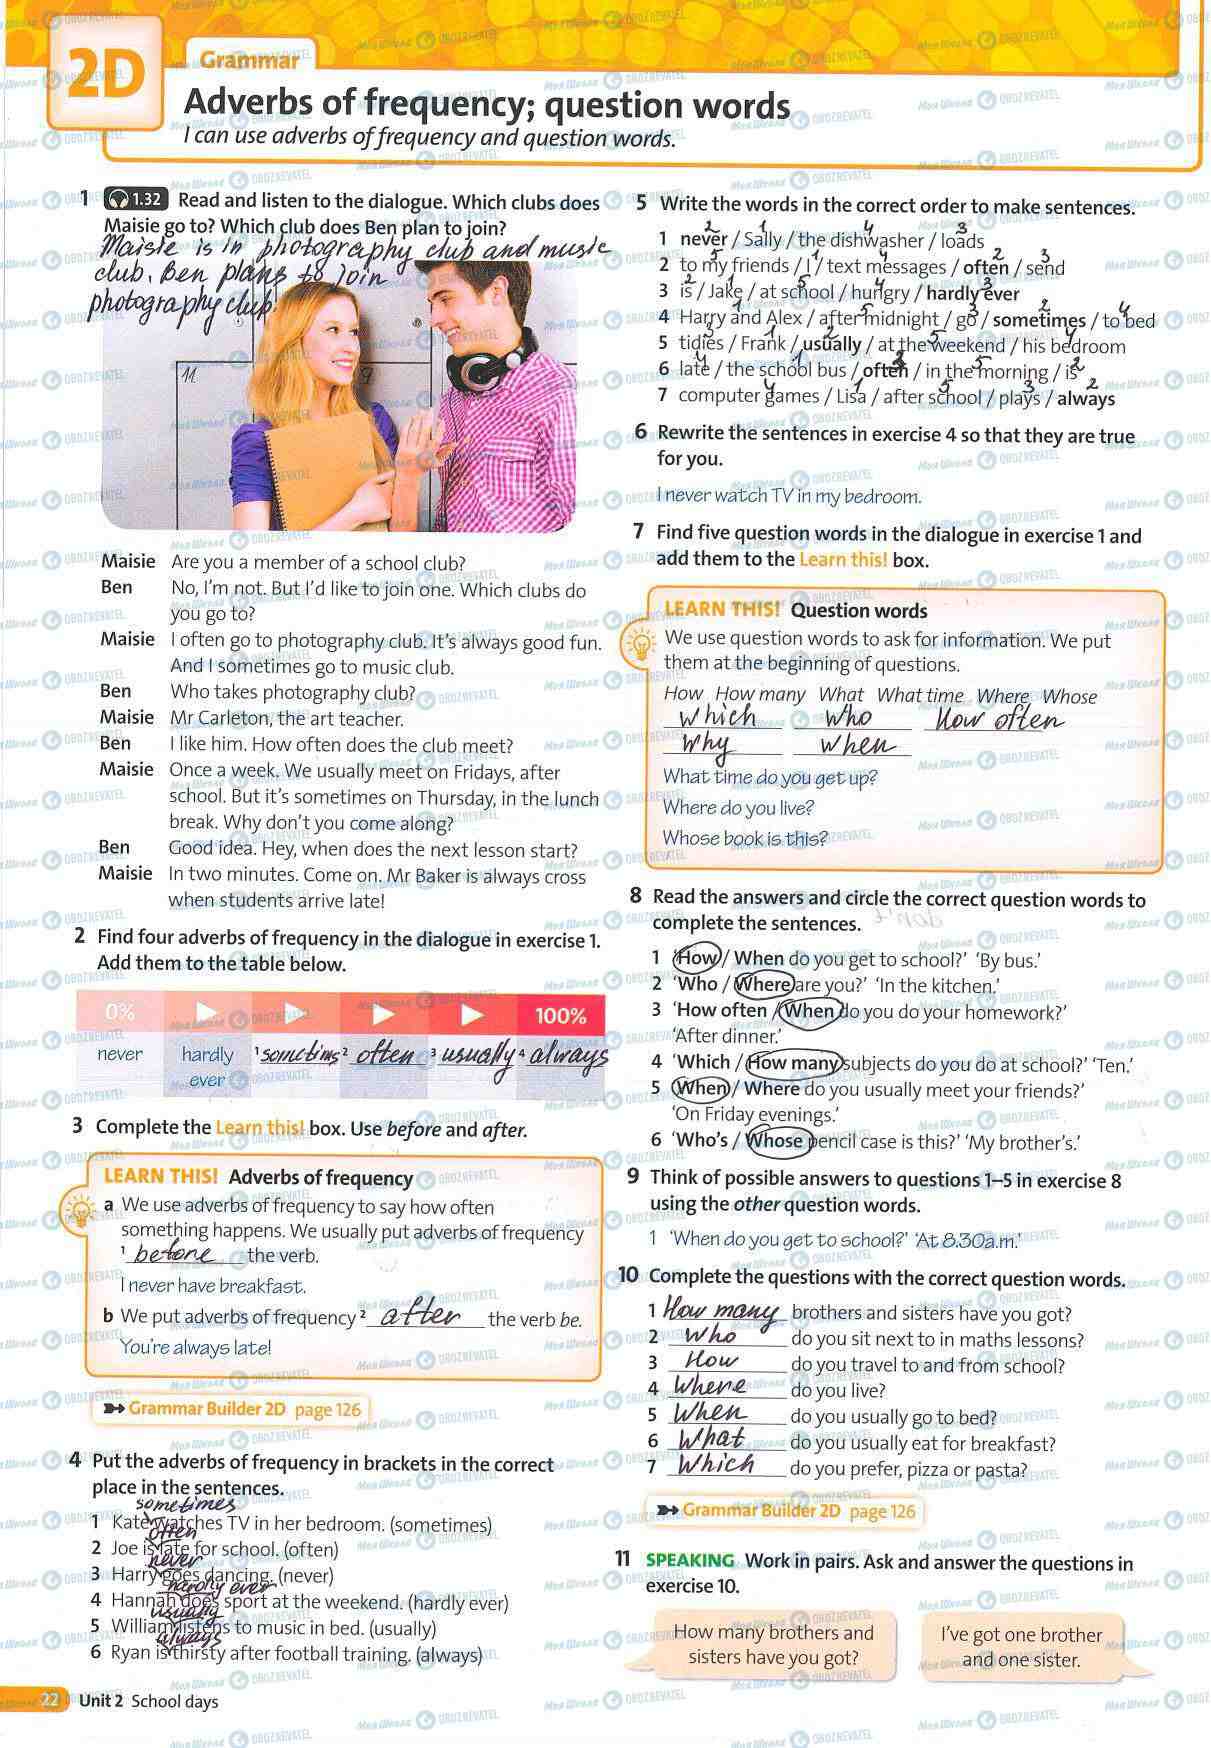 2D
Grammar
Adverbs of frequency; question words
I can use adverbs of frequency and question words.
1 1.32 Read and listen to the dialogue. Which clubs does
Maisie go to? Which club does Ben plan to join?
Maisie is in photography club and music
club. Ben plans to join
photography club.
11
9
Maisie Are you a member of a school club?
Ben No, I'm not. But I'd like to join one. Which clubs do
you go to?
Maisie I often go to photography club. It's always good fun.
And I sometimes go to music club.
Ben Who takes photography club?
Maisie Mr Carleton, the art teacher.
Ben I like him. How often does the club meet?
Maisie Once a week. We usually meet on Fridays, after
school. But it's sometimes on Thursday, in the lunch
break. Why don't you come along?
Ben Good idea. Hey, when does the next lesson start?
Maisie In two minutes. Come on. Mr Baker is always cross
when students arrive late!
2 Find four adverbs of frequency in the dialogue in exercise 1.
Add them to the table below.
0% 100%
never hardly 1 sometims 2 often 3 usually 4 always
ever
3 Complete the Learn this! box. Use before and after.
LEARN THIS! Adverbs of frequency
a We use adverbs of frequency to say how often
something happens. We usually put adverbs of frequency
1 before the verb.
I never have breakfast.
b We put adverbs of frequency 2 after the verb be.
You're always late!
Grammar Builder 2D page 126
4 Put the adverbs of frequency in brackets in the correct
place in the sentences.
sometimes
1 Kate watches TV in her bedroom. (sometimes)
often
2 Joe is late for school. (often)
never
3 Harry goes dancing. (never)
hardly ever
4 Hannah does sport at the weekend. (hardly ever)
usually
5 William listens to music in bed. (usually)
always
6 Ryan is thirsty after football training. (always)
22 Unit 2 School days
5 Write the words in the correct order to make sentences.
2 1 4 3
1 never / Sally / the dishwasher / loads
5 1 4 2 3
2 to my friends / I / text messages / often / send
2 1 5 4 3
3 is / Jake / at school / hungry / hardly ever
1 5 3 2 4
4 Harry and Alex / after midnight / go / sometimes / to bed
3 1 2 5 4
5 tidies / Frank / usually / at the weekend / his bedroom
4 1 3 5 2
6 late / the school bus / often / in the morning / is
4 1 5 3 2
7 computer games / Lisa / after school / plays / always
6 Rewrite the sentences in exercise 4 so that they are true
for you.
I never watch TV in my bedroom.
7 Find five question words in the dialogue in exercise 1 and
add them to the Learn this! box.
LEARN THIS! Question words
We use question words to ask for information. We put
them at the beginning of questions.
How How many What What time Where Whose
which who How often
why when
What time do you get up?
Where do you live?
Whose book is this?
8 Read the answers and circle the correct question words to
complete the sentences.
1 'How / When do you get to school?' 'By bus.'
2 'Who / Where are you?' 'In the kitchen.'
3 'How often / When do you do your homework?'
'After dinner.'
4 'Which / How many subjects do you do at school?' 'Ten.'
5 'When / Where do you usually meet your friends?'
'On Friday evenings.'
6 'Who's / Whose pencil case is this?' 'My brother's.'
9 Think of possible answers to questions 1–5 in exercise 8
using the other question words.
1 'When do you get to school?' 'At 8.30a.m.'
10 Complete the questions with the correct question words.
1 How many brothers and sisters have you got?
2 who do you sit next to in maths lessons?
3 How do you travel to and from school?
4 Where do you live?
5 When do you usually go to bed?
6 What do you usually eat for breakfast?
7 Which do you prefer, pizza or pasta?
Grammar Builder 2D page 126
11 SPEAKING Work in pairs. Ask and answer the questions in
exercise 10.
How many brothers and
sisters have you got?
I've got one brother
and one sister.